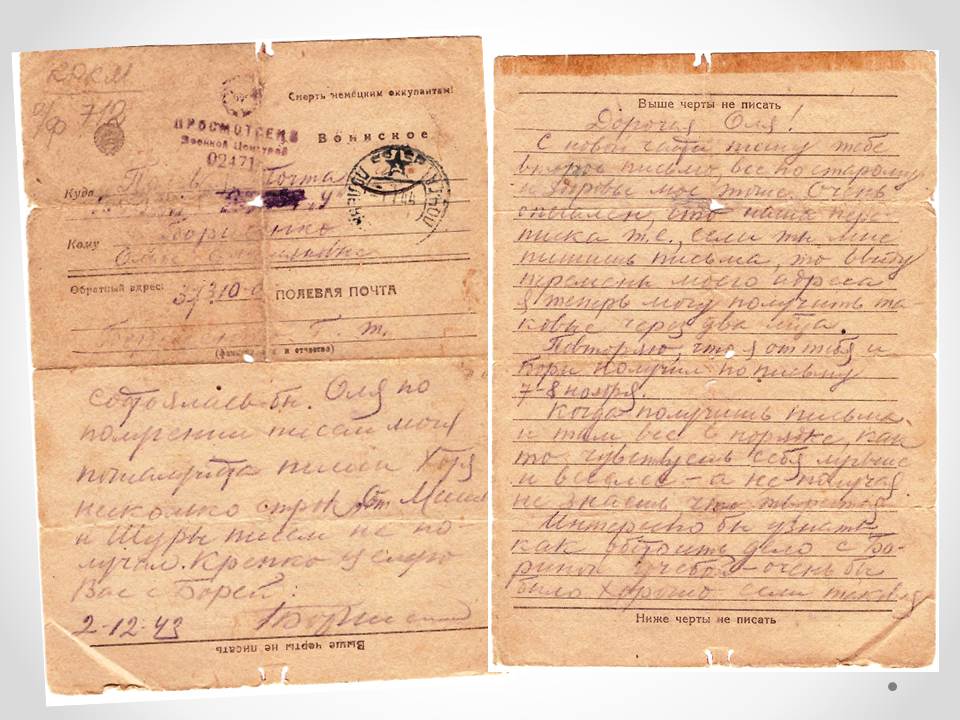 ККМ
712
Смерть немецким оккупантам!
ПРОСМОТРЕНО
Военной Цензурой
02471
Воинское
Почта
Куда
Кому
Борисенко
Ольге
Обратный адрес:
37310-
ПОЛЕВАЯ ПОЧТА
Г. т.
и отчество)
состоялась бы. Оля по
получении писем моих
пожалуйста пиши Хотя
несколько строк. От Миши
и Шуры писем не по-
лучал. Крепко целую
Вас с Борей.
2-12-43
Выше черты не писать
Выше черты не писать
Дорогая Оля!
С новой части пишу тебе
второе письмо, все по старому
и здоровье мое тоже. Очень
опечален, что наша пере-
писка т.е., если ты мне
пишешь письма, то ввиду
перемены моего адреса
я теперь могу получить та-
ковые через два м-ца.
Повторяю, что я от тебя и
Бори получил по письму
7-8 ноября.
Когда получишь письма
и там все в порядке, как
то чувствуешь себя лучше
и веселее - а не получая
не знаешь что творится.
Интересно бы узнать
как обстоит дело с Бо-
риной учебой - очень бы
было Хорошо если таковая
Ниже черты не писать